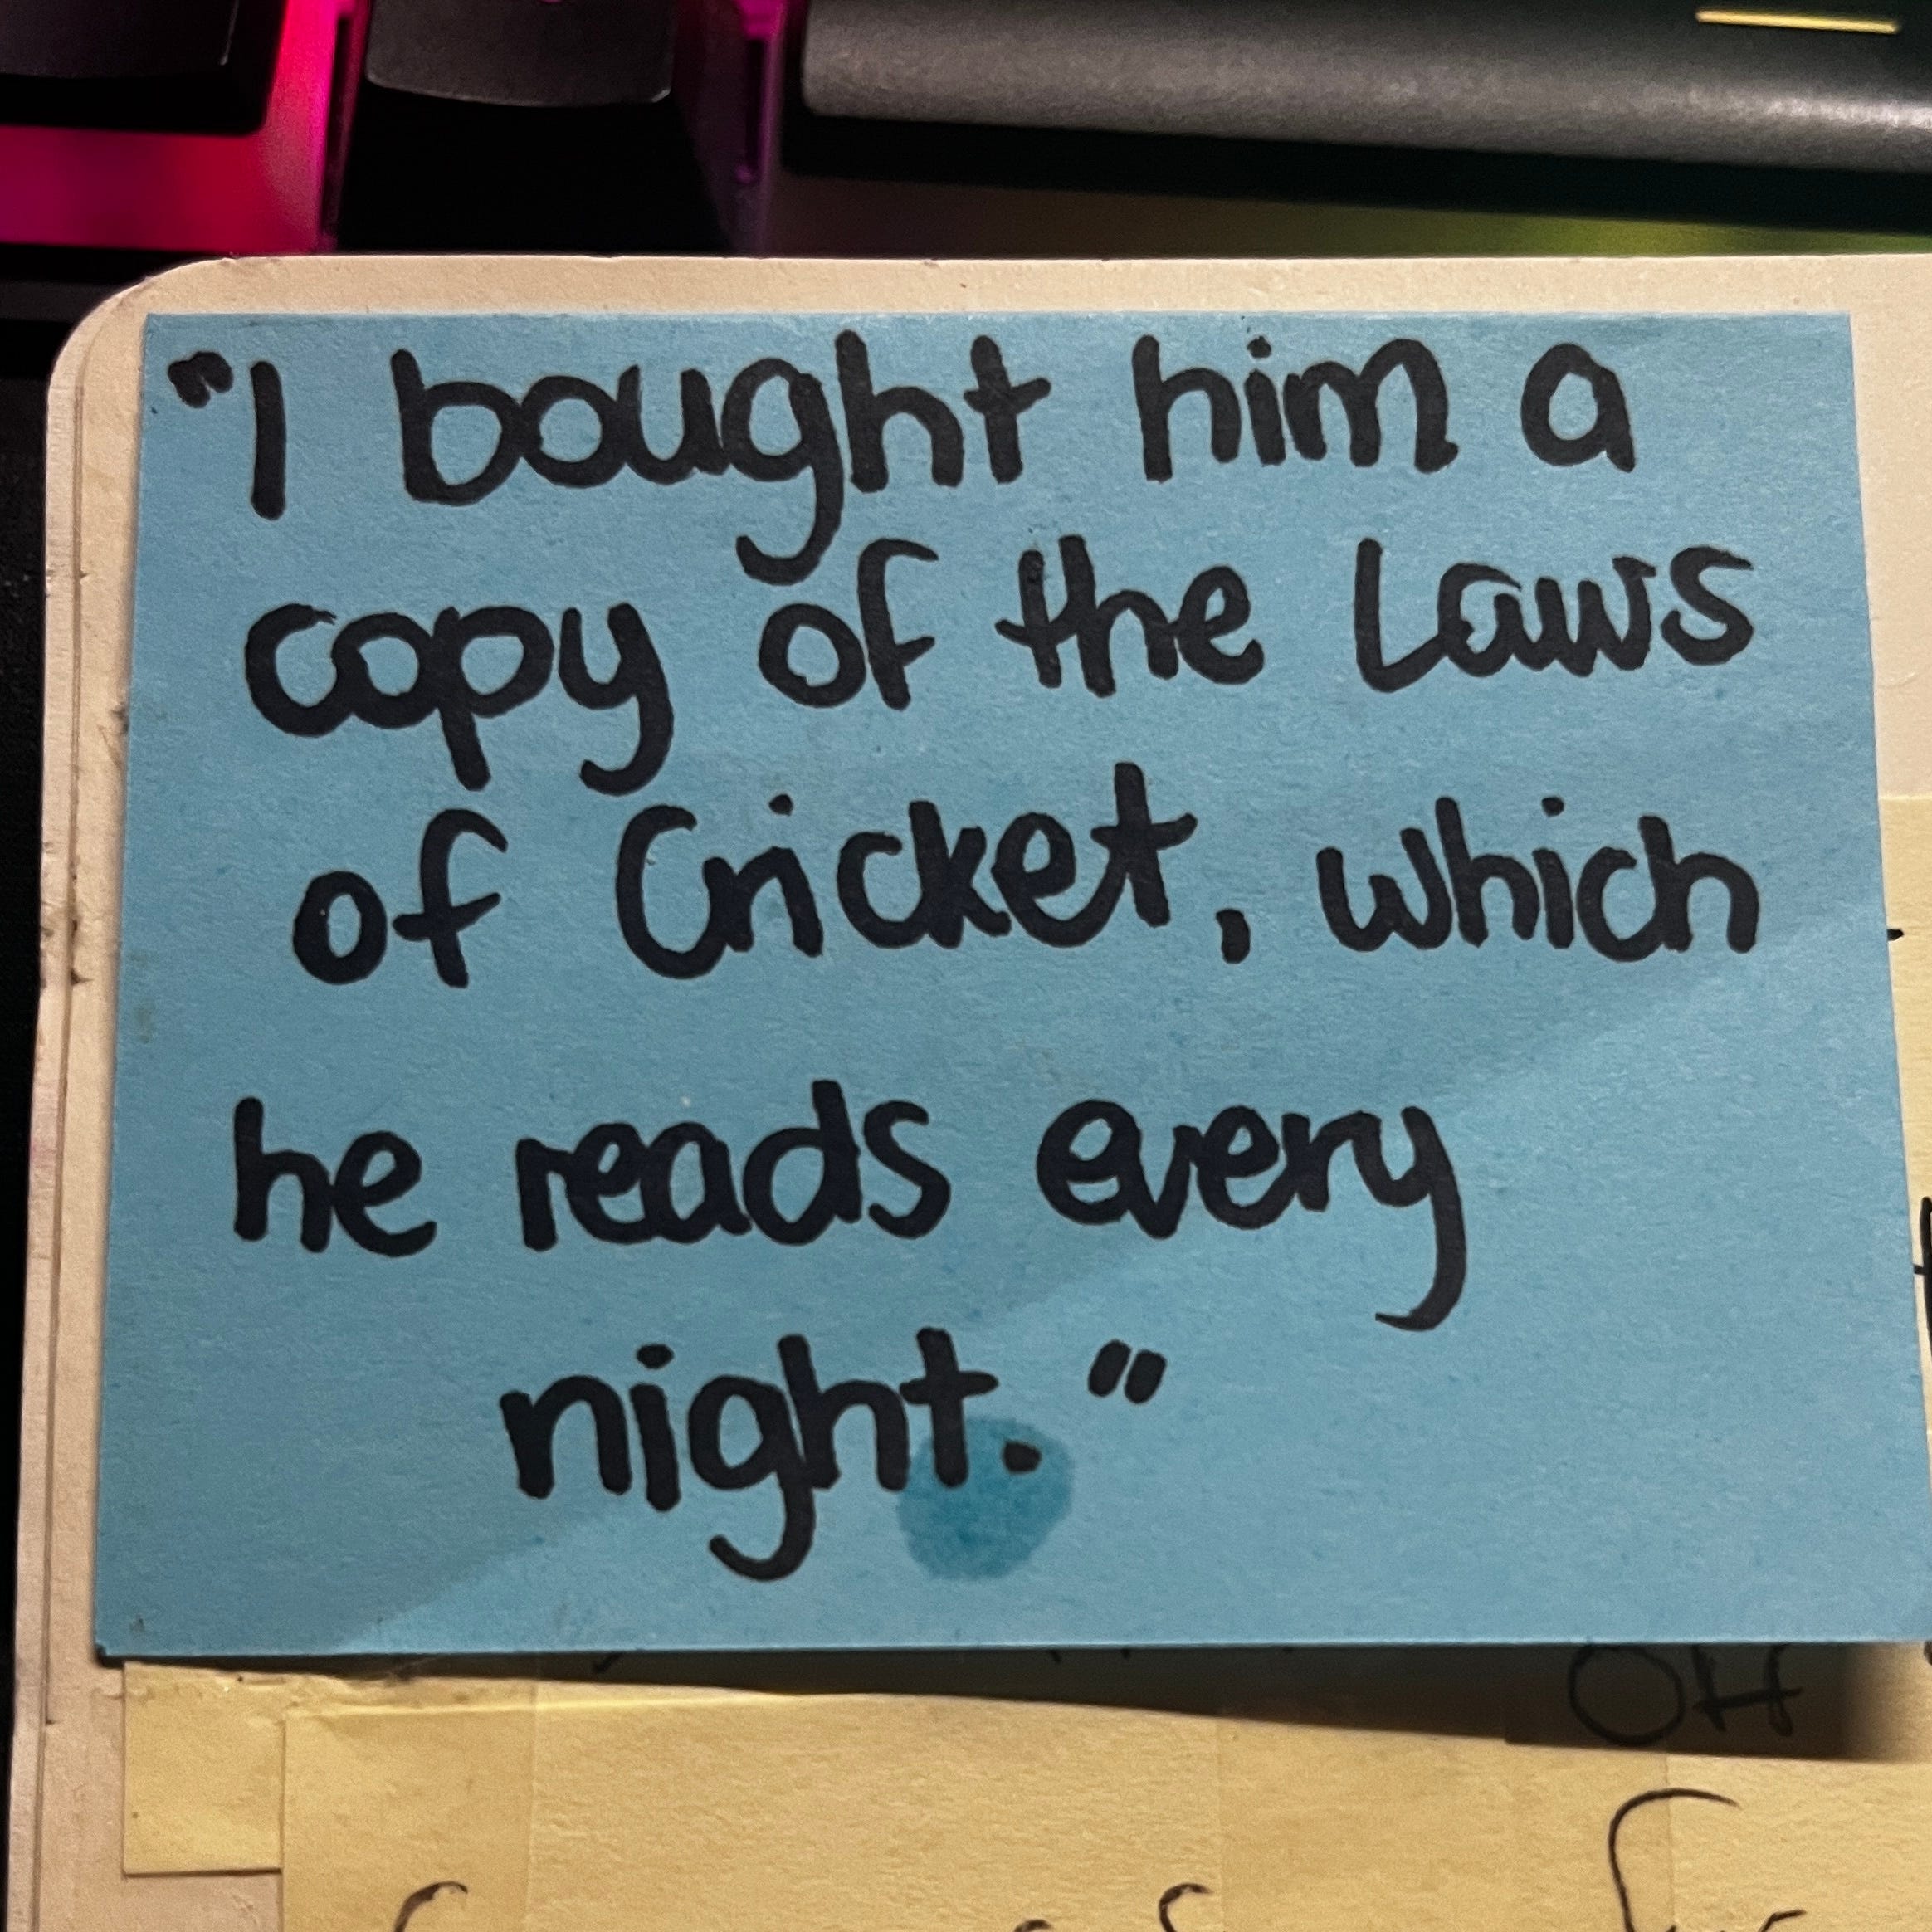 "I bought him a
copy of the Laws
of Cricket, which
he reads every
night."
OH